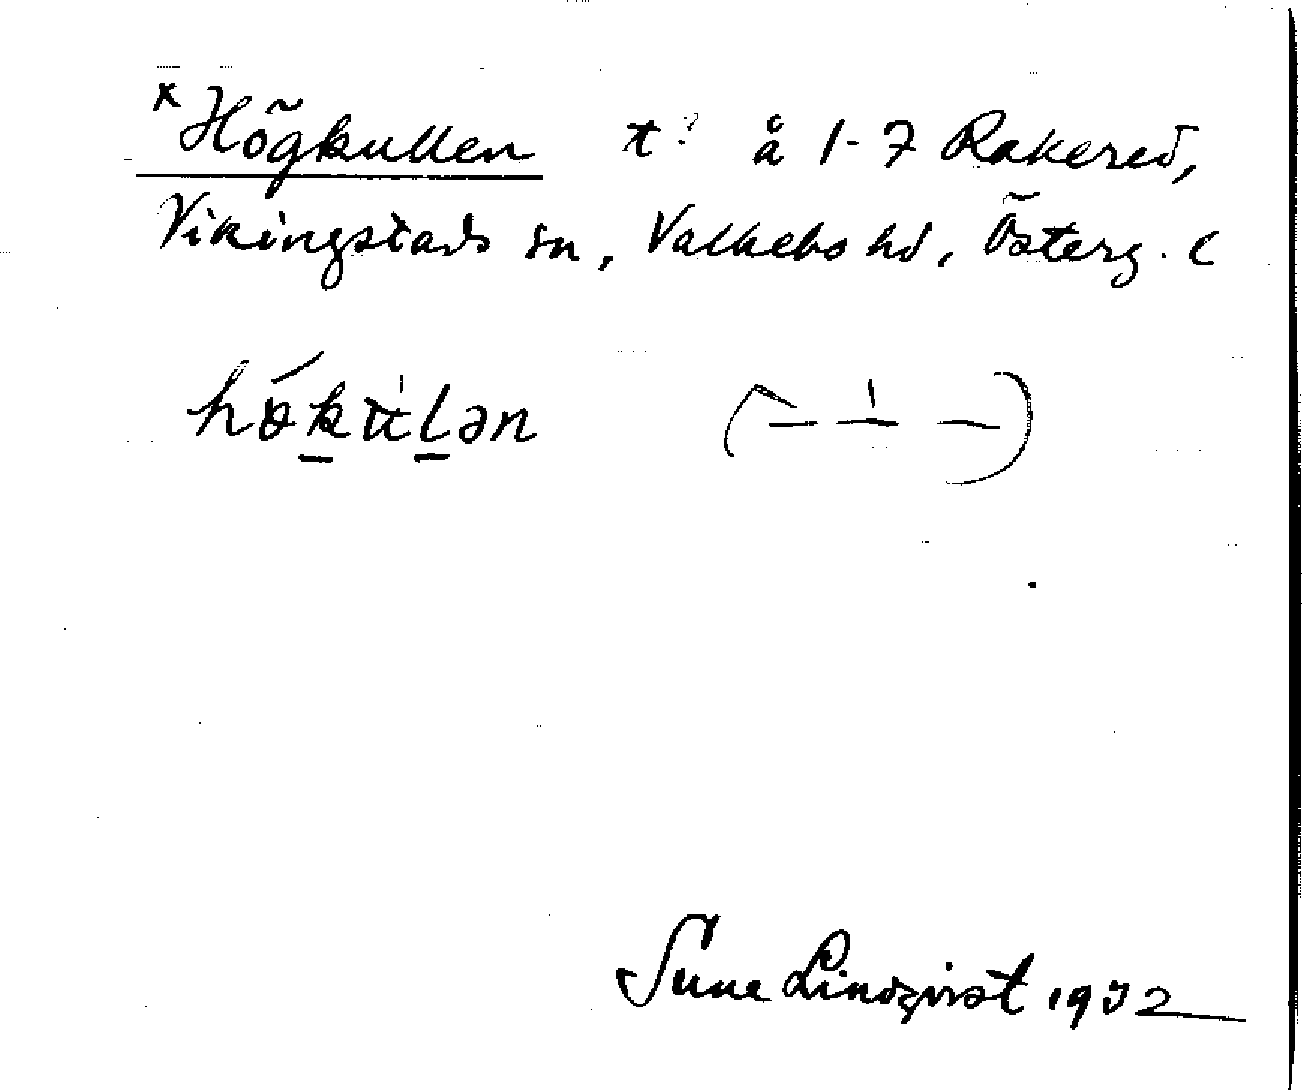 x Högkullen t? å 1-7 Rakered,
Vikingstads sn, Valkebo hd, Österg. l
hökulən (– – –)
Sune Lindqvist 1932